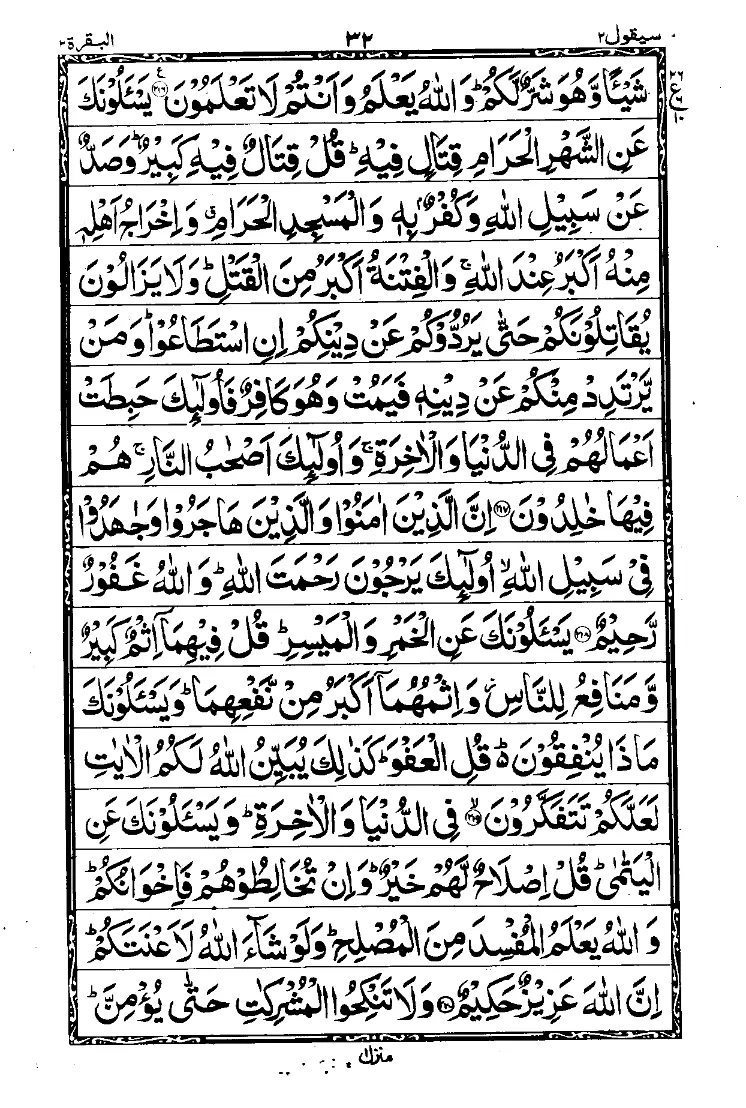 سيقول٢ ٣٢ البقرة٢
شَيْـًٔا وَّهُوَ شَرٌّ لَّكُمْ ؕ وَاللّٰهُ يَعْلَمُ وَاَنْتُمْ لَا تَعْلَمُوْنَ ﴿٢١٦﴾ يَسْـَٔلُوْنَكَ
عَنِ الشَّهْرِ الْحَرَامِ قِتَالٍ فِيْهِ ؕ قُلْ قِتَالٌ فِيْهِ كَبِيْرٌ ؕ وَصَدٌّ
عَنْ سَبِيْلِ اللّٰهِ وَكُفْرٌۢ بِهٖ وَالْمَسْجِدِ الْحَرَامِ ۗ وَاِخْرَاجُ اَهْلِهٖ
مِنْهُ اَكْبَرُ عِنْدَ اللّٰهِ ۚ وَالْفِتْنَةُ اَكْبَرُ مِنَ الْقَتْلِ ؕ وَلَا يَزَالُوْنَ
يُقَاتِلُوْنَكُمْ حَتّٰى يَرُدُّوْكُمْ عَنْ دِيْنِكُمْ اِنِ اسْتَطَاعُوْا ؕ وَمَنْ
يَّرْتَدِدْ مِنْكُمْ عَنْ دِيْنِهٖ فَيَمُتْ وَهُوَ كَافِرٌ فَاُولٰٓئِكَ حَبِطَتْ
اَعْمَالُهُمْ فِى الدُّنْيَا وَالْاٰخِرَةِ ۚ وَاُولٰٓئِكَ اَصْحٰبُ النَّارِ ۚ هُمْ
فِيْهَا خٰلِدُوْنَ ﴿٢١٧﴾ اِنَّ الَّذِيْنَ اٰمَنُوْا وَالَّذِيْنَ هَاجَرُوْا وَجٰهَدُوْا
فِىْ سَبِيْلِ اللّٰهِ ۙ اُولٰٓئِكَ يَرْجُوْنَ رَحْمَتَ اللّٰهِ ؕ وَاللّٰهُ غَفُوْرٌ
رَّحِيْمٌ ﴿٢١٨﴾ يَسْـَٔلُوْنَكَ عَنِ الْخَمْرِ وَالْمَيْسِرِ ؕ قُلْ فِيْهِمَآ اِثْمٌ كَبِيْرٌ
وَّمَنَافِعُ لِلنَّاسِ ؗ وَاِثْمُهُمَآ اَكْبَرُ مِنْ نَّفْعِهِمَا ؕ وَيَسْـَٔلُوْنَكَ
مَاذَا يُنْفِقُوْنَ ۬ؕ قُلِ الْعَفْوَ ؕ كَذٰلِكَ يُبَيِّنُ اللّٰهُ لَكُمُ الْاٰيٰتِ
لَعَلَّكُمْ تَتَفَكَّرُوْنَ ﴿٢١٩﴾ فِى الدُّنْيَا وَالْاٰخِرَةِ ؕ وَيَسْـَٔلُوْنَكَ عَنِ
الْيَتٰمٰى ؕ قُلْ اِصْلَاحٌ لَّهُمْ خَيْرٌ ؕ وَاِنْ تُخَالِطُوْهُمْ فَاِخْوَانُكُمْ ؕ
وَاللّٰهُ يَعْلَمُ الْمُفْسِدَ مِنَ الْمُصْلِحِ ؕ وَلَوْ شَآءَ اللّٰهُ لَاَعْنَتَكُمْ ؕ
اِنَّ اللّٰهَ عَزِيْزٌ حَكِيْمٌ ﴿٢٢٠﴾ وَلَا تَنْكِحُوا الْمُشْرِكٰتِ حَتّٰى يُؤْمِنَّ ؕ
منزل١